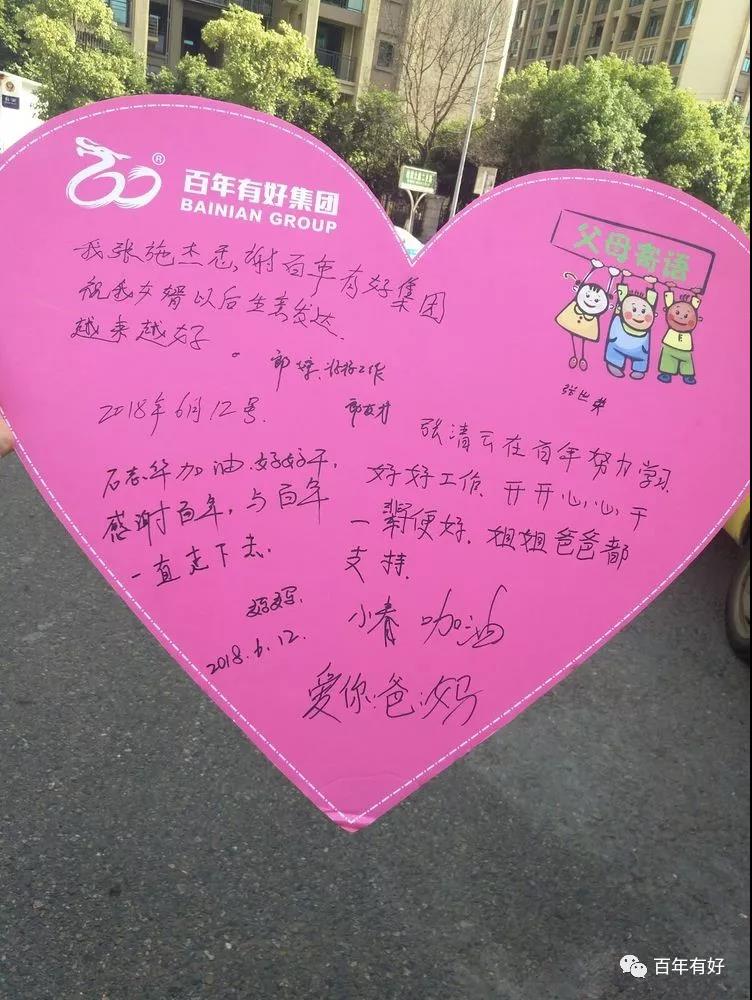 百年有好集团
BAINIAN GROUP
®
父母寄语
我张施杰悉,谢百年有好集团
祝我女婿以后生意发达.
越来越好。
好好工作
2018年6月12号.
张世荣
张清云在百年努力学习.
好好工作.开开心心.干
一辈便好.姐姐爸爸都
支持.
石志华加油.好好干,
感谢百年,与百年
一直走下去.
妈妈.
2018.6.12.
小春 加油
爱你.爸.妈
百年有好